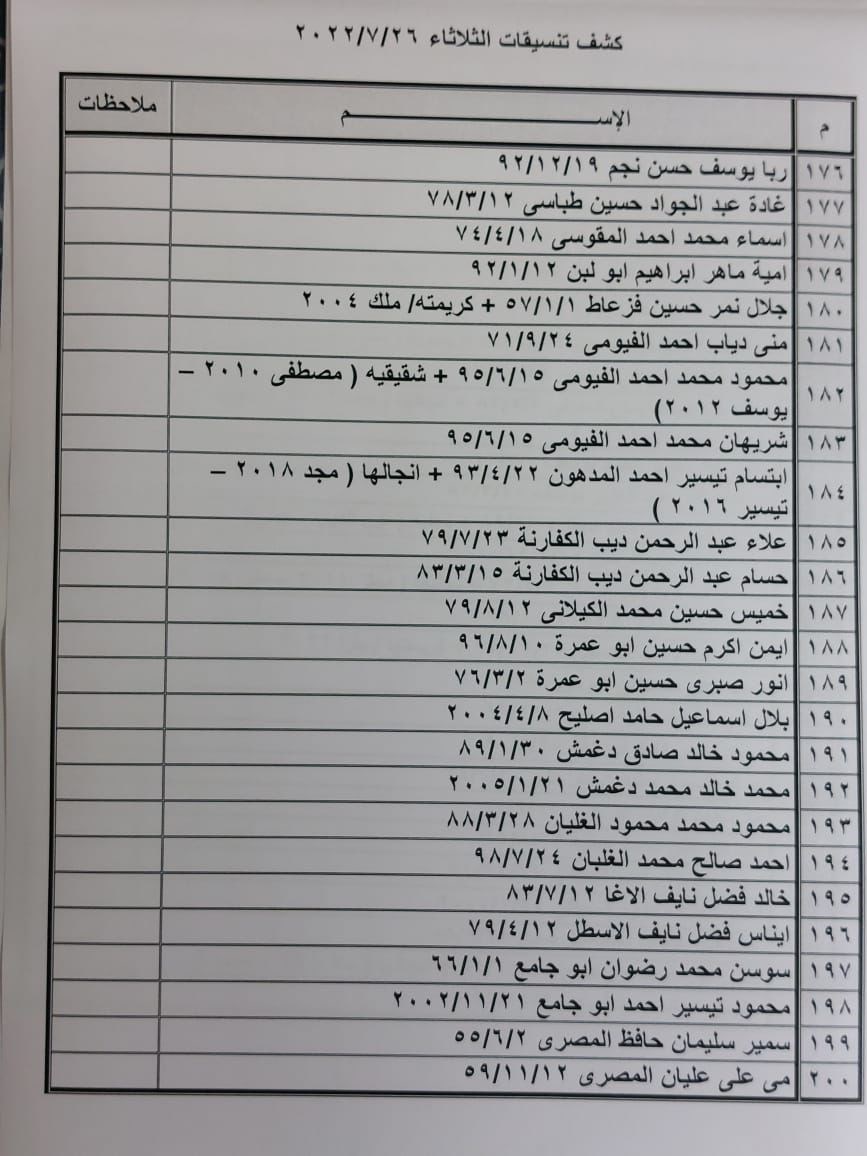 كشف تنسيقات الثلاثاء ٢٠٢٢/٧/٢٦
م الإســـــــــم ملاحظات
١٧٦ ربا يوسف حسن نجم ٩٢/١٢/١٩
١٧٧ غادة عبد الجواد حسين طباسى ٧٨/٣/١٢
١٧٨ اسماء محمد احمد المقوسى ٧٤/٤/١٨
١٧٩ امية ماهر ابراهيم ابو لبن ٩٢/١/١٢
١٨٠ جلال نمر حسين فزعاط ٥٧/١/١ + كريمته/ ملك ٢٠٠٤
١٨١ منى دياب احمد الفيومى ٧١/٩/٢٤
١٨٢ محمود محمد احمد الفيومى ٩٥/٦/١٥ + شقيقيه ( مصطفى ٢٠١٠ –
يوسف ٢٠١٢)
١٨٣ شريهان محمد احمد الفيومى ٩٥/٦/١٥
١٨٤ ابتسام تيسير احمد المدهون ٩٣/٤/٢٢ + انجالها ( مجد ٢٠١٨ –
تيسير ٢٠١٦ )
١٨٥ علاء عبد الرحمن ديب الكفارنة ٧٩/٧/٢٣
١٨٦ حسام عبد الرحمن ديب الكفارنة ٨٣/٣/١٥
١٨٧ خميس حسين محمد الكيلانى ٧٩/٨/١٢
١٨٨ ايمن اكرم حسين ابو عمرة ٩٦/٨/١٠
١٨٩ انور صبرى حسين ابو عمرة ٧٦/٣/٢
١٩٠ بلال اسماعيل حامد اصليح ٢٠٠٤/٤/٨
١٩١ محمود خالد صادق دغمش ٨٩/١/٣٠
١٩٢ محمد خالد محمد دغمش ٢٠٠٥/١/٢١
١٩٣ محمود محمد محمود الغليان ٨٨/٣/٢٨
١٩٤ احمد صالح محمد الغلبان ٩٨/٧/٢٤
١٩٥ خالد فضل نايف الاغا ٨٣/٧/١٢
١٩٦ ايناس فضل نايف الاسطل ٧٩/٤/١٢
١٩٧ سوسن محمد رضوان ابو جامع ٦٦/١/١
١٩٨ محمود تيسير احمد ابو جامع ٢٠٠٢/١١/٢١
١٩٩ سمير سليمان حافظ المصرى ٥٥/٦/٢
٢٠٠ مى على عليان المصرى ٥٩/١١/١٢